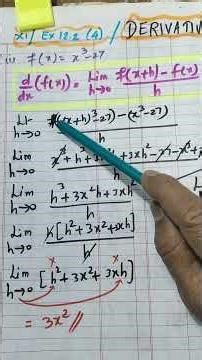 XI / Ex 12.2 (4) / DERIVATIV
(i) f(x) = x³-27
d/dx (f(x)) = Lim h→0 f(x+h) - f(x) / h
Li- h→0 ((x+h)³-27) - (x³-27) / h
Lim h→0 x³ + h³ + 3x²h + 3xh² - 27 - x³ + / h
Lim h→0 h³ + 3x²h + 3xh² / h
Lim h→0 h[h² + 3x² + 3xh] / h
Lim h→0 [h² + 3x² + 3xh]
= 3x² //